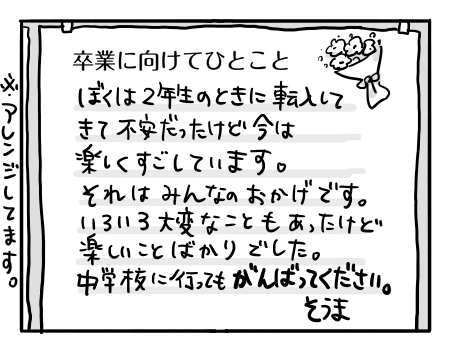 卒業に向けてひとこと
ぼくは2年生のときに転入して
きて不安だったけど今は
楽しくすごしています。
それはみんなのおかげです。
いろいろ大変なこともあったけど
楽しいことばかりでした。
中学校に行ってもがんばってください。
そうま
※アレンジしてます。